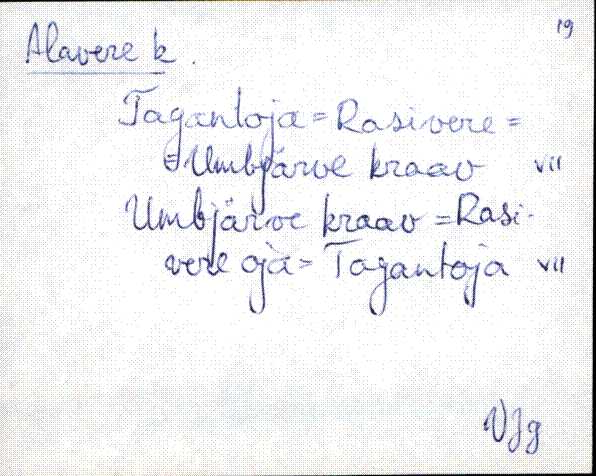 19
Alavere k.
Tagantoja = Rasivere =
= Umbjärve kraav VII
Umbjärve kraav = Rasi-
vere oja = Tagantoja VII
VJg